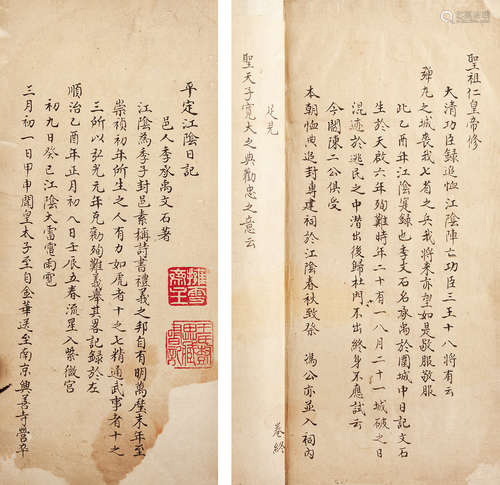 平定江陰日記
邑人李承禹文石著
江陰為季子封邑素稱詩書禮義之邦自有明萬歷末年至
崇禎初年所生之人有力如虎者十之七精通武事者十之
三所以弘光元年克勷殉難義舉其畧記錄於左
順治乙酉年正月初八日壬辰立春流星入紫微宮
初九日癸巳江陰大雷電雨雹
三月初一日甲申闖皇太子至自金華送至南京興善寺營卒
聖祖仁皇帝修
大清功臣錄追恤江陰陣亡功臣三王十八將有云
彈丸之城喪我七省之兵我將來亦望如是敬服敬服
此乙酉年江陰實錄也李文石名承禹於圍城中日記文石
生於天啟六年殉難時年二十有一八月二十一城破之日
混迹於逃民之中潛出後歸杜門不出終身不應試云
今閻陳二公俱受
本朝恤典追封專建祠於江陰春秋致祭 馮公亦並入祠內
足見
聖天子寬大之典勸忠之意云
卷終